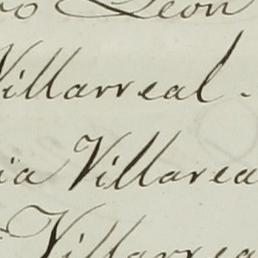 Leon
Villarreal.
Villarea
Villarrea